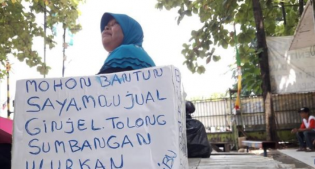 MOHON BANTUN
SAYA MAU JUAL
GINJEL. TOLONG
SUMBANGAN
ULURKAN